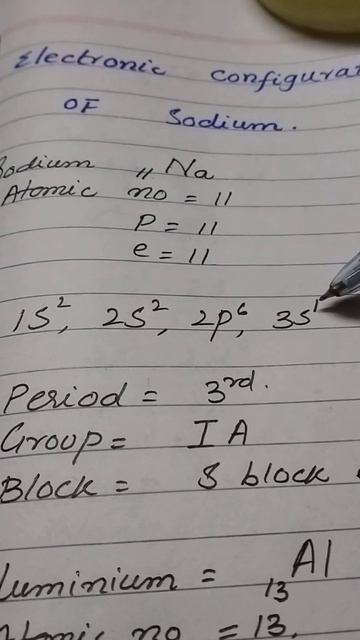 Electronic Configurat
OF Sodium.
Sodium ₁₁Na
Atomic no = 11
P = 11
e = 11
1S², 2S², 2P⁶, 3S¹
Period = 3rd.
Group = I A
Block = S block
luminium = ₁₃Al
Atomic no = 13